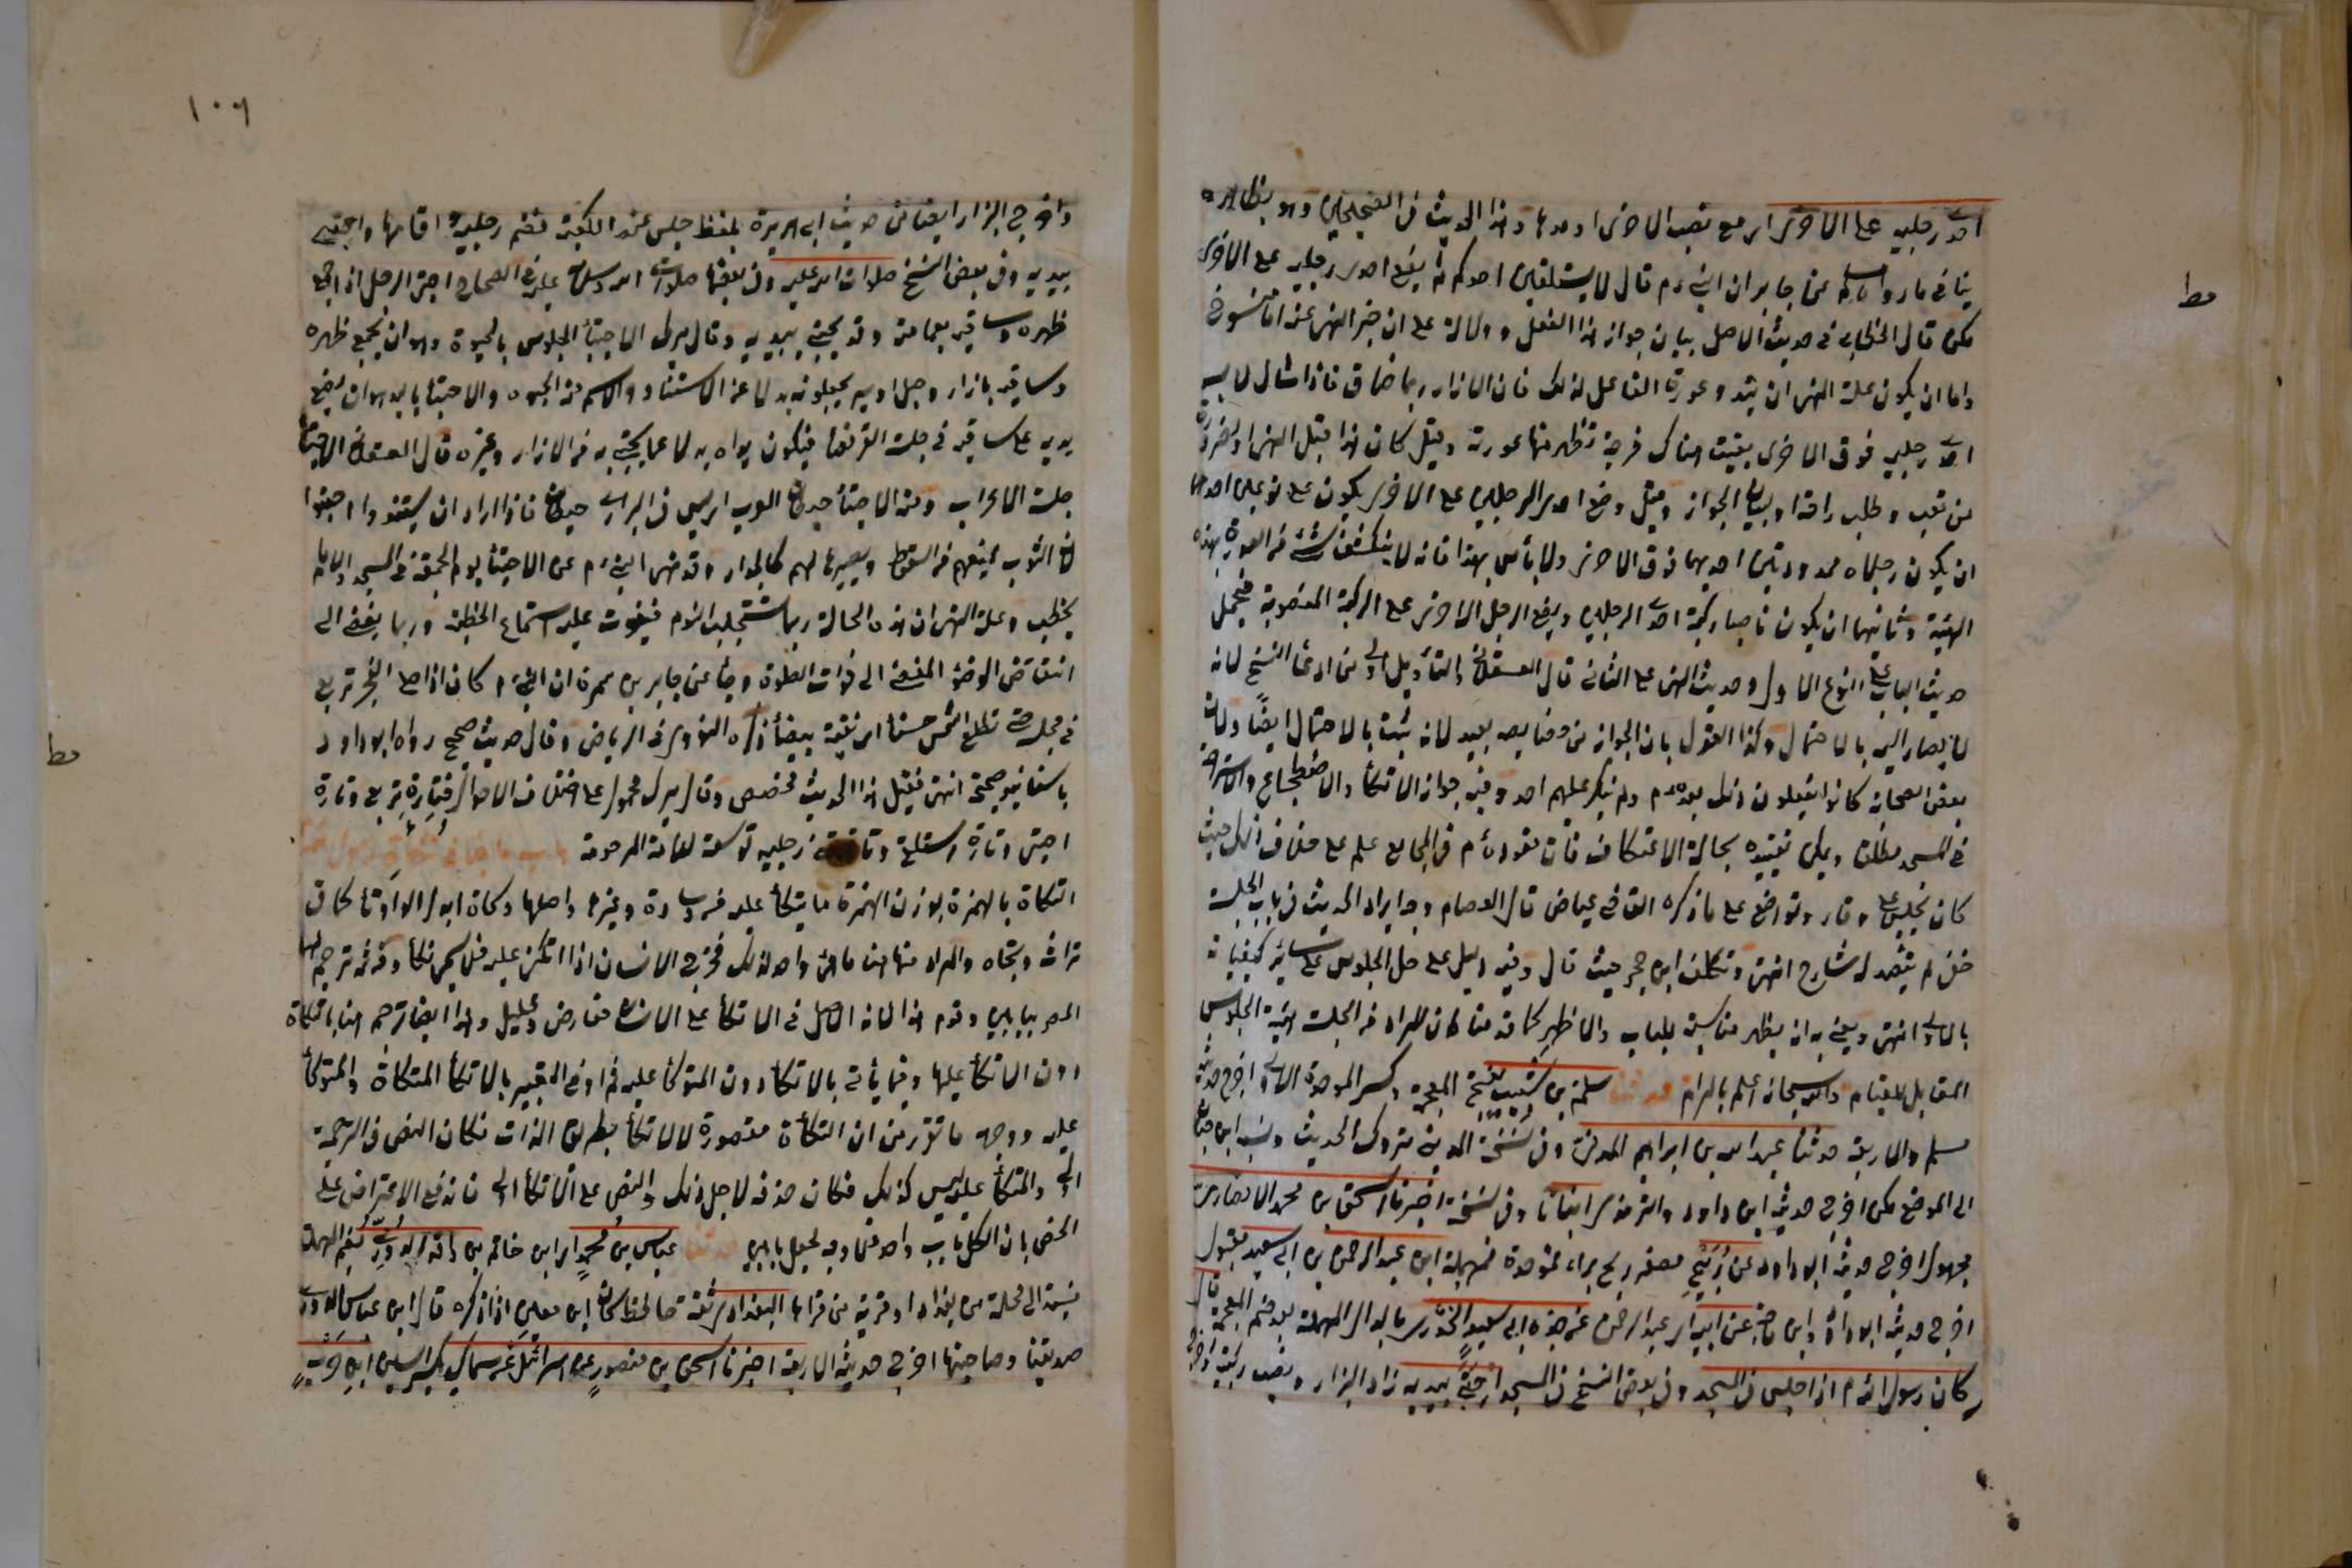 احدى رجليه على الاخرى اى مع نصب الاخرى او مدها وهذا الحديث فى الصحيحين وهو بظاهره
ينافى ما رواه مسلم عن جابر ان النبى م قال لا يستلقين احدكم ثم يضع احدى رجليه على الاخرى
لكن قال الخطابى فى حديث الاصل بيان جواز هذا الفعل ودلالة على ان خبر النهى عنه اما منسوخ
واما ان يكون علة النهى ان تبدو عورة الفاعل لذلك فان الازار ربما ضاق فاذا شال لابسه
احدى رجليه فوق الاخرى بقيت هناك فرجة تظهر منها عورته وقيل كان هذا قبل النهى او لضرورة
من تعب وطلب راحة او لبيان الجواز وقيل وضع احدى الرجلين على الاخرى يكون على نوعين احدهما
ان يكون رجلاه ممدودتين احديهما فوق الاخرى ولا بأس بهذا فانه لا ينكشف شئ من العورة بهذه
الهيئة وثانيهما ان يكون ناصبا ركبة احدى الرجلين ويضع الرجل الاخرى على الركبة المنصوبة فيحمل
حديث الباب على النوع الاول وحديث النهى على الثانى قال العسقلانى والتأويل اولى من ادعاء النسخ لانه
لا يصار اليه بالاحتمال وكذا القول بان الجواز من خصايصه بعيد لانه لا يثبت بالاحتمال ايضا ولان
بعض الصحابة كانوا يفعلون ذلك بعده م ولم ينكر عليهم احد وفيه جواز الاتكاء والاضطجاع والاستراحة
فى المسجد مطلقا ويمكن تقييده بحالة الاعتكاف فان قعوده م فى المجامع علم على خلاف ذلك حيث
كان يجلس على وقار وتواضع على ما ذكره القاضى عياض قال العصام وجه ايراد الحديث فى باب الجلسة
خفى لم يتصد له شارح انتهى وتكلف ابن حجر حيث قال وفيه دليل على حل الجلوس على سائر كيفياته
بالاولى انتهى ويعنى به انه يظهر مناسبته للباب والاظهر كما قدمنا ان المراد من الجلسة هيئة الجلوس
المقابل للقيام والله سبحانه اعلم بالمرام حدثنا سلمة بن شبيب بفتح المعجمة وكسر الموحدة الاولى اخرج حديثه
مسلم والاربعة حدثنا عبد الله بن ابراهيم المدنى وفى نسخة المدينى متروك الحديث ونسبه ابن حبان
الى الوضع لكن اخرج حديثه ابى داود والترمذى انبأنا وفى نسخة اخبرنا اسحق بن محمد الانصارى
مجهول اخرج حديثه ابو داود عن رُبَيْح مصغر ربح براء فموحدة فمهملة ابن عبد الرحمن بن ابى سعيد مقبول
اخرج حديثه ابو داود وابن ماجه عن ابيه اى عبد الرحمن عن جده ابى سعيد الخدرى بالدال المهملة بعد ضم المعجمة قال
كان رسول الله م اذا جلس فى المسجد وفى بعض النسخ فى المسجد احتبى بيديه زاد البزار ونصب ركبتيه
مط
١٠٦
واخرج البزار ايضا من حديث ابى هريرة بلفظ جلس عند الكعبة فضم رجليه واقامهما واحتبى
بيديه وفى بعض النسخ صلوات الله عليه وفى بعضها صلوات الله وسلامه عليه فى الصحاح احتبى الرجل اذا جمع
ظهره وساقيه بعمامته وقد يحتبى بيديه وقال ميرك الاحتباء الجلوس بالحبوة وهو ان يجمع ظهره
وساقيه بازار وحبل او سير يجعلونه بدلا عن الاستناد والاسم منه الحبوة والاحتباء باليد هو ان يضع
يديه على ساقيه فى جلسة القرفصاء فيكون يداه بدلا عما يحتبى به من الازار وغيره قال العسقلانى الاحتباء
جلسة الاعراب ومنه الاحتباء حيطان العرب اى ليس فى البرارى حيطان فاذا اراد ان يستندوا احتبوا
لان الثوب يمنعهم من السقوط ويصير لهم كالجدار وقد نهى النبى م عن الاحتباء يوم الجمعة فى المسجد والامام
يخطب وعلة النهى ان هذه الحالة ربما تستجلب النوم فيفوت عليه استماع الخطبة وربما يفضى الى
انتقاض الوضوء المفضى الى فوات الصلوة وجاء عن جابر بن سمرة ان النبى م كان اذا صلى الفجر تربع
فى مجلسه حتى تطلع الشمس حسناء اى نقية بيضاء ذكره النووى فى الرياض وقال حديث صحيح رواه ابو داود
باسانيد صحيحة انتهى فقيل هذا الحديث مخصص وقال ميرك محمول على اختلاف الاحوال فتارة تربع وتارة
احتبى وتارة استلقى وتارة ثنى رجليه توسعة للامة المرحومة باب ما جاء فى تكأة رسول الله
التكاة بالهمزة بوزن الهمزة ما يتكأ عليه من وسادة وغيرها واصلها وكاة ابدل الواو تاء كما فى
تراث وتجاه والمراد منها هنا ما هيئ واعد لذلك فخرج الانسان اذا اتكئ عليه فلا يسمى تكأة ومن ثمه ترجم لهما
المص ببابين وقدم هذا لانه الاصل فى الاتكاء على الانسان عارض وقليل ولهذا ايضا ترجم هنا بالتكاة
دون الاتكاء عليها وفيما يأتى بالاتكاء دون المتوكأ عليه
عليه ووجه ما تقرر من ان التكأة مقصورة لالاتكاء بطريق الذات فكان النص فى الترجمة
اولى والمتكأ عليه ليس كذلك فكان حذفه لاجل ذلك والنص على الاتكاء اولى فاندفع الاعتراض على
المص بان الكل باب واحد فما وجه لجعل بابين حدثنا عباس بن محمد اى ابن حاتم بن واقد الدورى بضم المهملة
نسبة الى محلة من بغداد او قرية من قراها البغدادى ثقة حافظ كان ابن معين اذا ذكره قال ابن عباس الدورى
صديقنا وصاحبنا اخرج حديثه الاربعة اخبرنا اسحق بن منصور عن اسرائيل عن سماك بكسر السين ابن حرب
مط